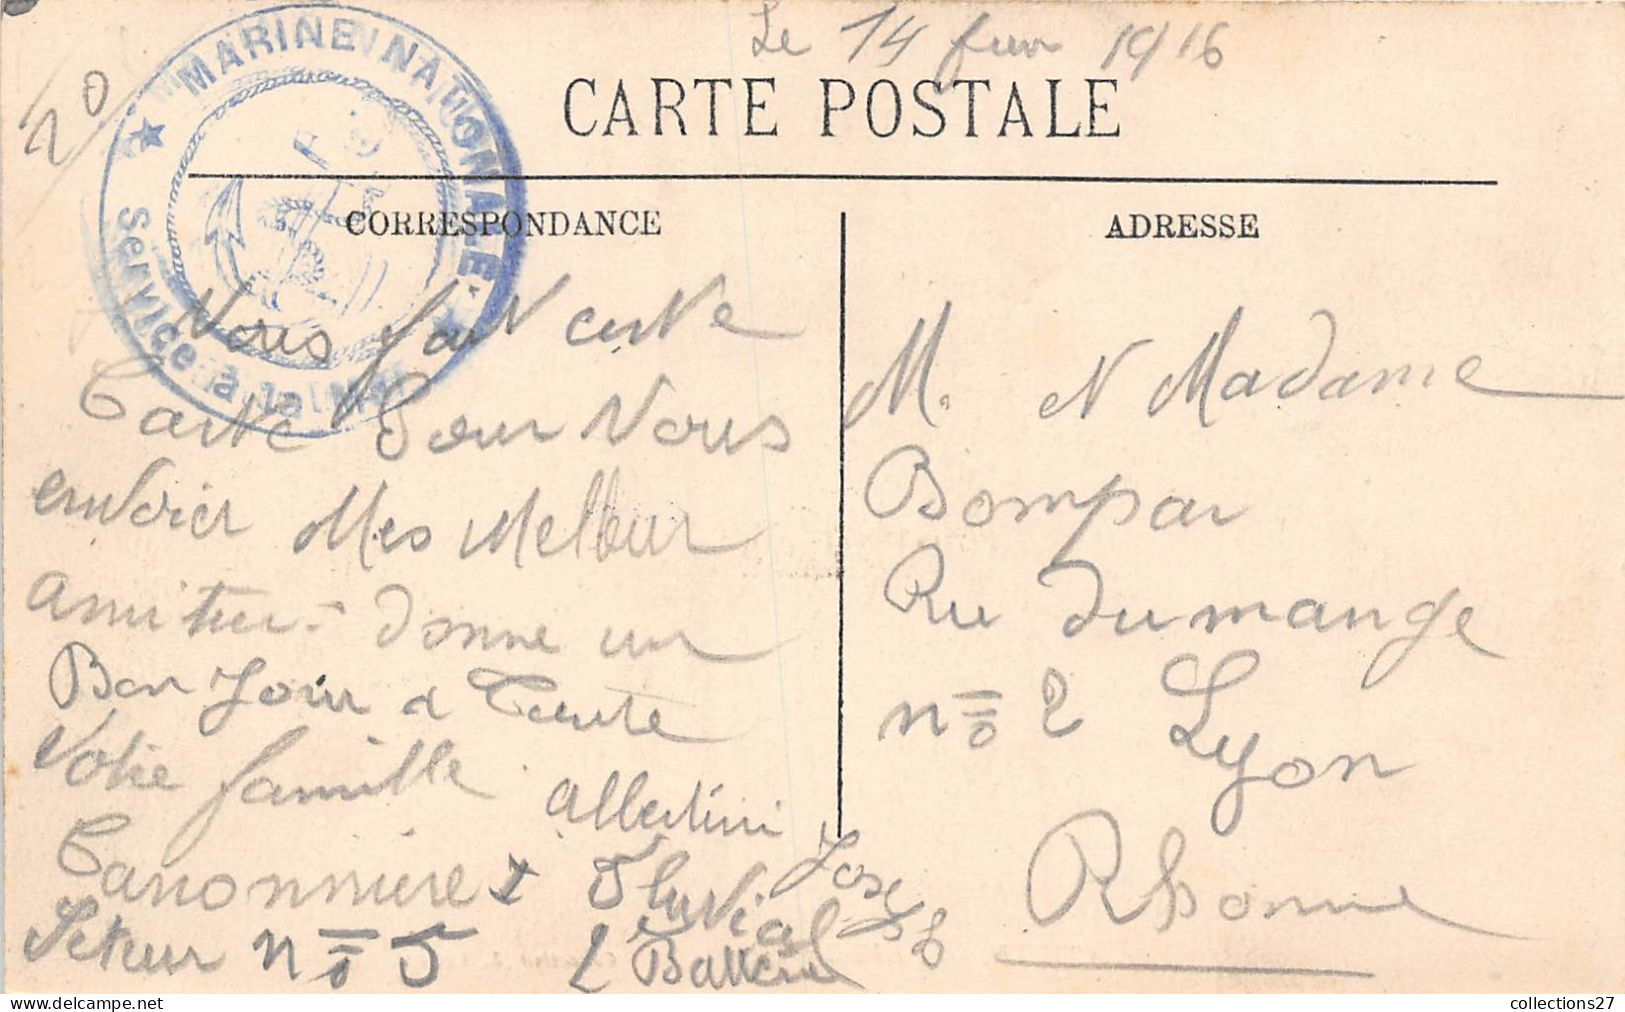 20
MARINE NATIONALE
Service à la Mer
Le 14 fevr 1916
CARTE POSTALE
CORRESPONDANCE
Vous fait cette
Carte Pour Vous
envoier Mes Melleur
amitier - donne un
Bon Jour a Toute
Votre famille
albertini
Josepb
Canonniere Fluvial
Seteur n° 5 2 Batterie
ADRESSE
M. et Madame
Bompar
Ru Dumange
n° 2 Lyon
Rhonne
collections27